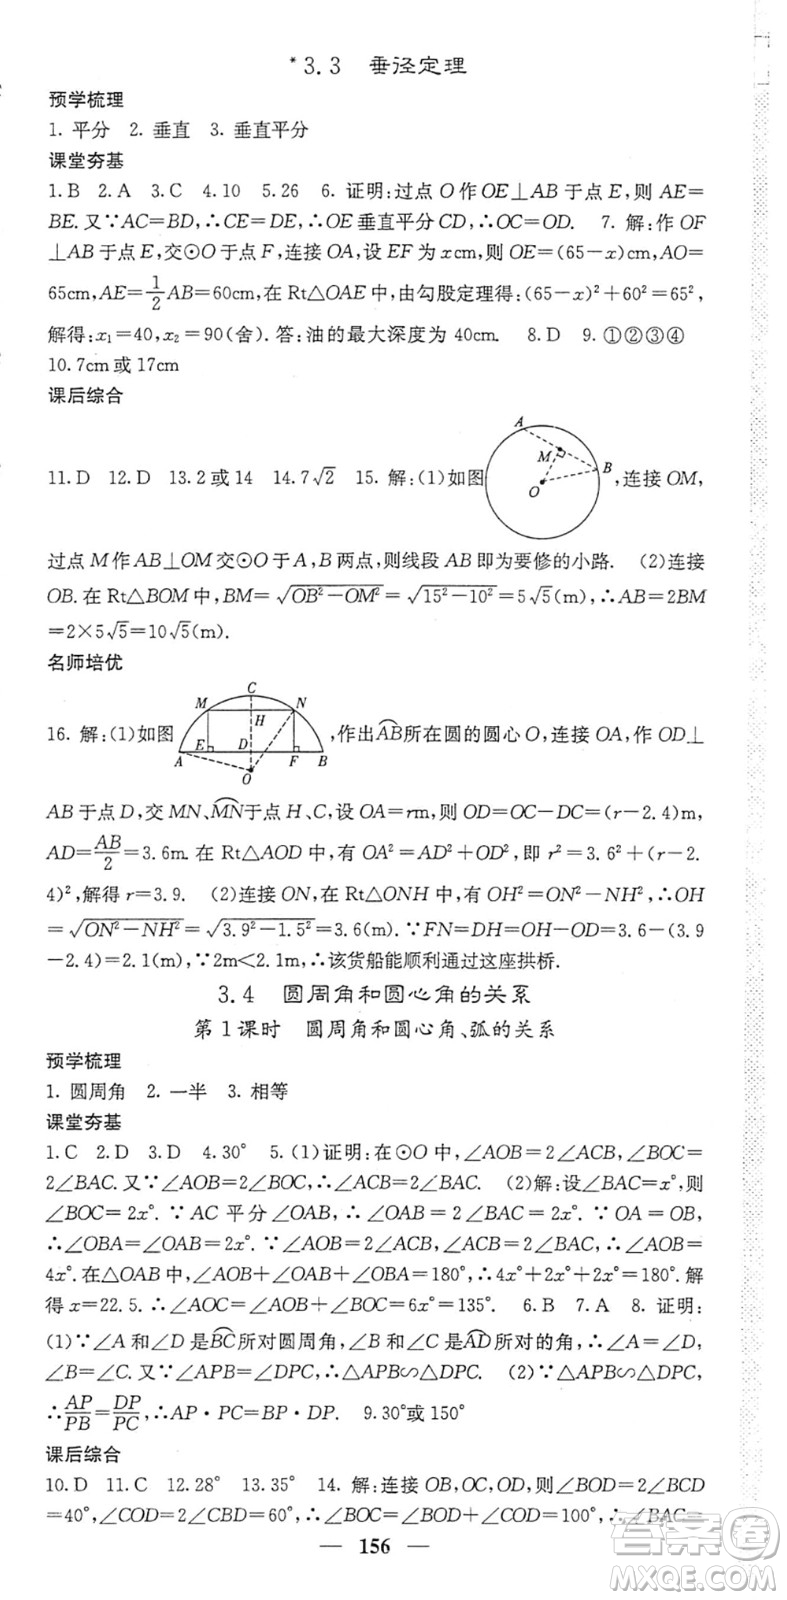 *3.3 垂径定理
预学梳理
1. 平分 2. 垂直 3. 垂直平分
课堂夯基
1.B 2.A 3.C 4.10 5.26 6. 证明:过点 O 作 OE⊥AB 于点 E,则 AE=
BE. 又∵AC=BD,∴CE=DE,∴OE 垂直平分 CD,∴OC=OD. 7. 解:作 OF
⊥AB 于点 E,交⊙O 于点 F,连接 OA,设 EF 为 xcm,则 OE=(65-x)cm,AO=
65cm,AE=1/2AB=60cm,在 Rt△OAE 中,由勾股定理得:(65-x)²+60²=65²,
解得:x₁=40,x₂=90(舍). 答:油的最大深度为 40cm. 8.D 9.①②③④
10.7cm 或 17cm
课后综合
11.D 12.D 13.2 或 14 14.7√2 15. 解:(1)如图 A M B O ,连接 OM,
过点 M 作 AB⊥OM 交⊙O 于 A,B 两点,则线段 AB 即为要修的小路. (2)连接
OB. 在 Rt△BOM 中,BM=√(OB²-OM²)=√(15²-10²)=5√5(m),∴AB=2BM
=2×5√5=10√5(m).
名师培优
16. 解:(1)如图 M C N H E D F A B O ,作出AB⌒所在圆的圆心 O,连接 OA,作 OD⊥
AB 于点 D,交 MN、MN⌒于点 H、C,设 OA=rm,则 OD=OC-DC=(r-2.4)m,
AD=AB/2=3.6m. 在 Rt△AOD 中,有 OA²=AD²+OD²,即 r²=3.6²+(r-2.
4)²,解得 r=3.9. (2)连接 ON,在 Rt△ONH 中,有 OH²=ON²-NH²,∴OH
=√(ON²-NH²)=√(3.9²-1.5²)=3.6(m). ∵FN=DH=OH-OD=3.6-(3.9
-2.4)=2.1(m),∵2m<2.1m,∴该货船能顺利通过这座拱桥.
3.4 圆周角和圆心角的关系
第 1 课时 圆周角和圆心角、弧的关系
预学梳理
1. 圆周角 2. 一半 3. 相等
课堂夯基
1.C 2.D 3.D 4.30° 5. (1)证明:在⊙O 中,∠AOB=2∠ACB,∠BOC=
2∠BAC. 又∵∠AOB=2∠BOC,∴∠ACB=2∠BAC. (2)解:设∠BAC=x°,则
∠BOC=2x°. ∵ AC 平分∠OAB,∴∠OAB=2∠BAC=2x°. ∵ OA=OB,
∴∠OBA=∠OAB=2x°. ∵∠AOB=2∠ACB,∠ACB=2∠BAC,∴∠AOB=
4x°. 在△OAB 中,∠AOB+∠OAB+∠OBA=180°,∴4x°+2x°+2x°=180°. 解
得 x=22.5. ∴∠AOC=∠AOB+∠BOC=6x°=135°. 6.B 7.A 8. 证明:
(1)∵∠A 和∠D 是BC⌒所对圆周角,∠B 和∠C 是AD⌒所对的角,∴∠A=∠D,
∠B=∠C. 又∵∠APB=∠DPC,∴△APB∽△DPC. (2)∵△APB∽△DPC.
∴AP/PB=DP/PC,∴AP·PC=BP·DP. 9.30°或 150°
课后综合
10.D 11.C 12.28° 13.35° 14. 解:连接 OB,OC,OD,则∠BOD=2∠BAD
=40°,∠COD=2∠CBD=60°,∴∠BOC=∠BOD+∠COD=100°,∴∠BAC=
156
答案圈
MXQE.COM